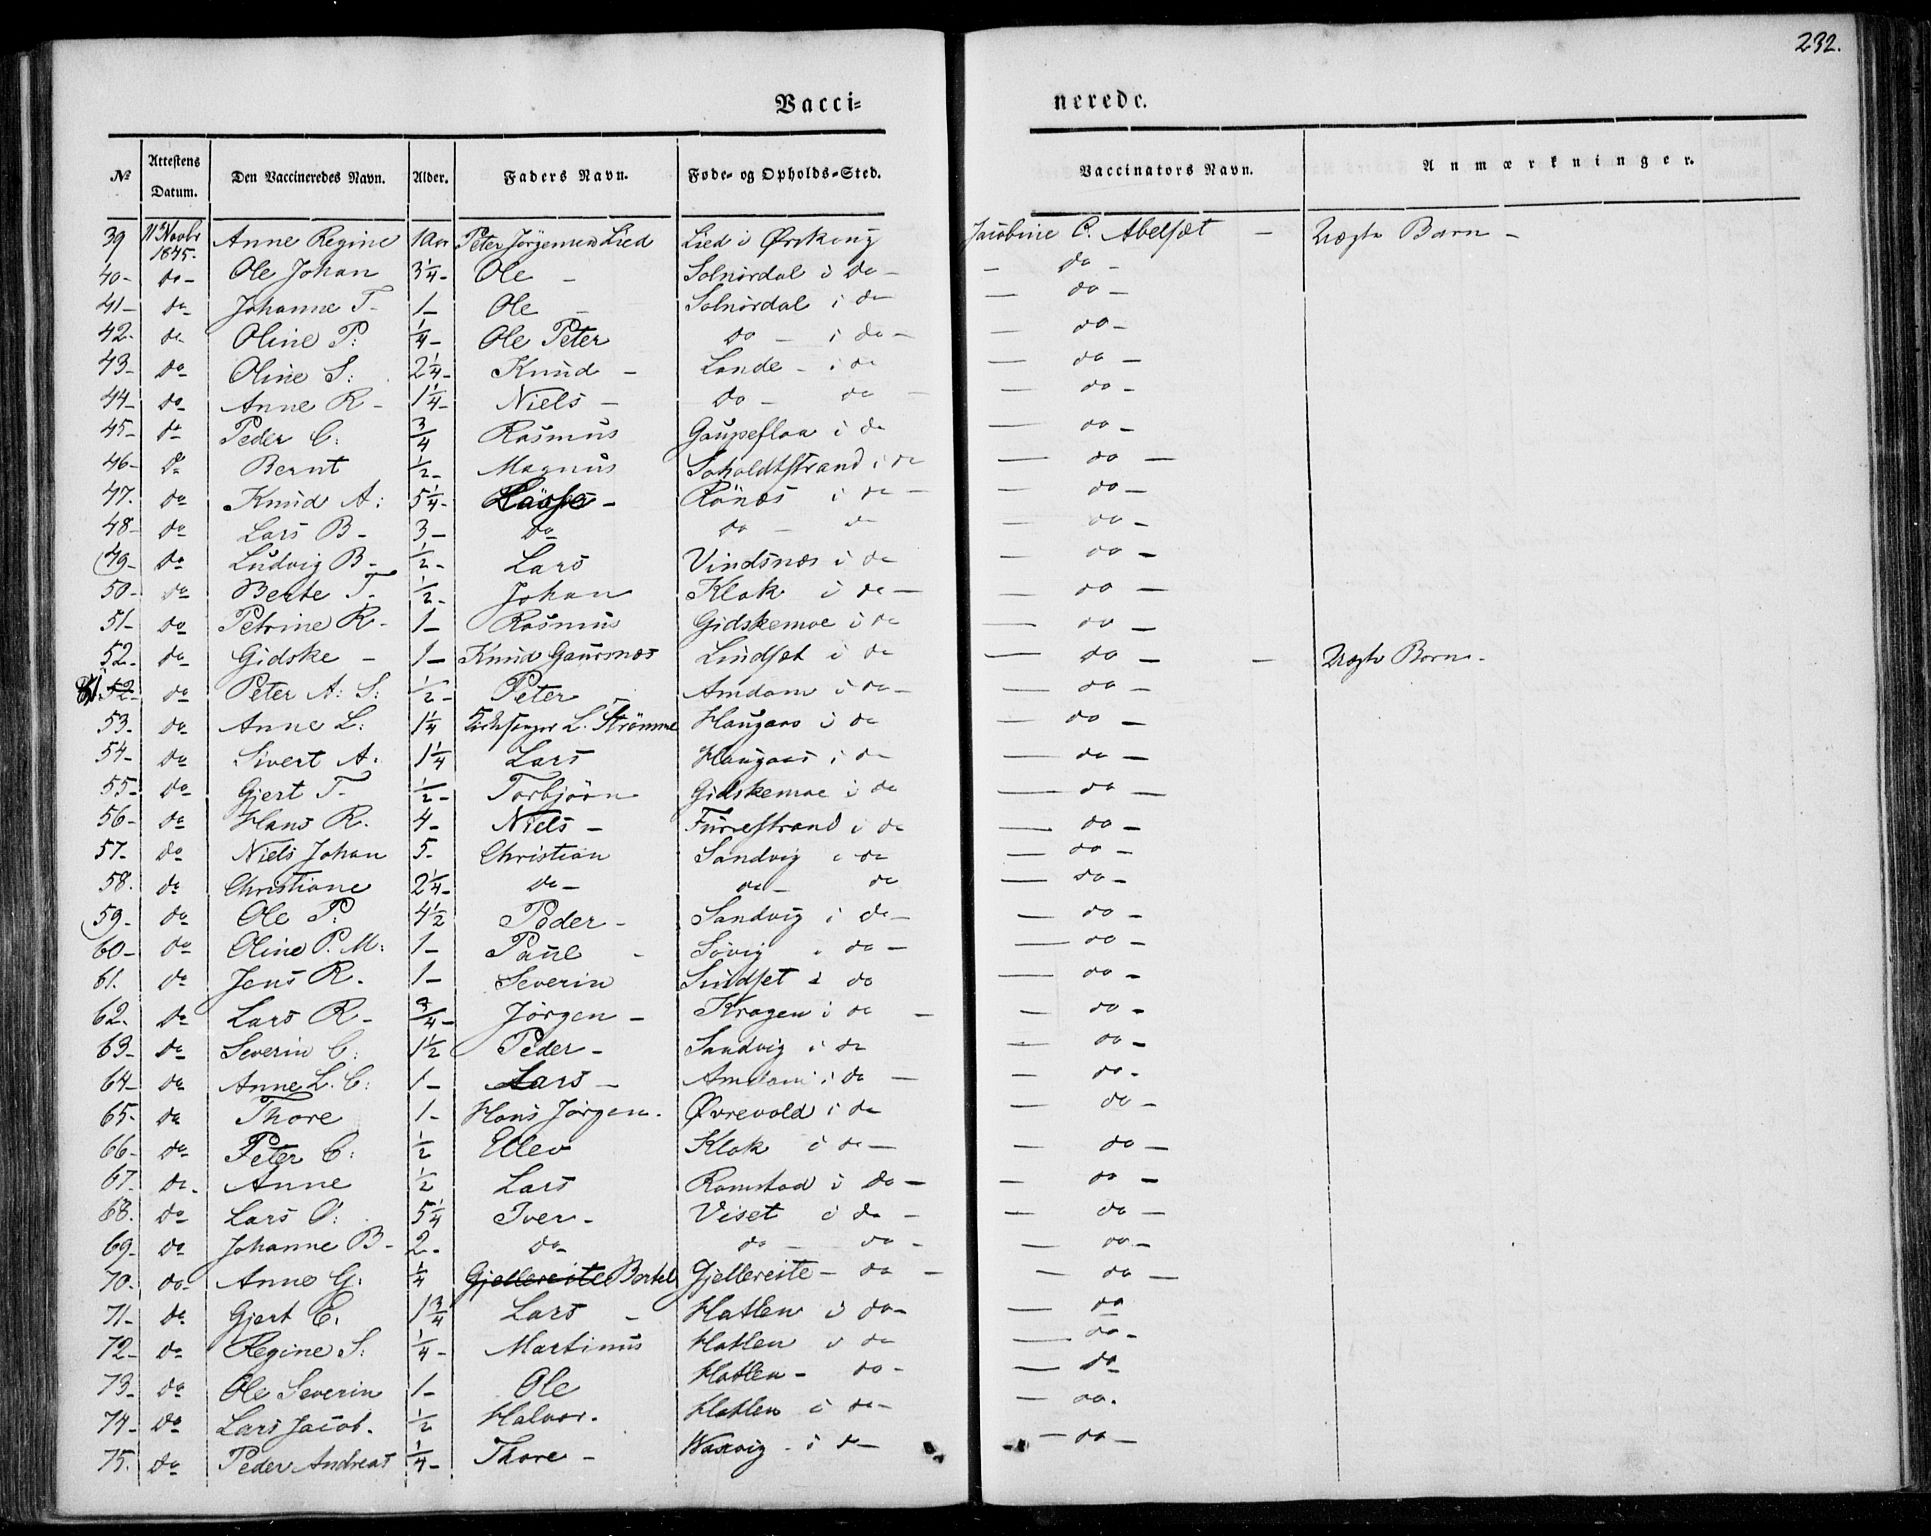 232.
Vacci= nerede.
No Attestens Datum. Den Vaccineredes Navn. Alder. Faders Navn. Føde- og Opholds-Sted. Vaccinators Navn. Anmærkninger.
39 11 Novbr 1845. Anne Regine 1 Aar Peter Jørgensen Lied Lied i Ørskoug Jacobine C. Abelset - Uægte Barn -
40- do- Ole Johan 3 1/4- Ole - Solnørdal i do- - do -
41- do- Johanne T- 1- Ole - Solnørdal i do - do -
42- do- Oline P: 1/4- Ole Peter do - i do- - do-
43- do Oline S: 2 1/4- Knud - Lande - i do - do -
44- do- Anne R- 1 1/4- Niels - do - do - - do -
45- do Peder C: 3/4 Rasmus Gaupeflaa i do - do -
46- do Bernt 1/2- Magnus Soholdtstrand i do - do -
47. do Knud A: 5 1/4- - Rönes i do - - do -
48- do Lars B- 3- do do - do - do -
49- do Ludvig B- 1/2- Lars Vindsnes i do - do -
50- do Berte T- 1/2- Johan Klok i do - - do -
51- do Petrine R- 1- Rasmus Gidskemoe i do - do -
52- do Gidske - 1- Knud Gausnæs Lindset i do - do - - Uægte Barn -
52- do Peter A: S: 1/2- Peter Amdam i do- - do -
53- do Anne L: 1 1/4 Kirkesanger L. Strömme Haugaas i do - do -
54- do Sivert A: 1 1/4 Lars Haugaas i do - do -
55- do Gjert T- 1/2- Torbjörn Gidskemoe i do - do -
56- do Hans R. 4- Niels - Furrestrand i do - do -
57- do Niels Johan 5- Christian Sandvig i do - do -
58. do Christiane 2 1/4- do- do- do - do -
59- do Ole P: 4 1/2 Peder - Sandvig i do- - do -
60- do Oline P. M: 1- Paul - Søvig i do - - do -
61. do Jens R. 1- Severin Lindset i do - do -
62. do Lars R- 3/4- Jörgen - Kragen i do - - do -
63- do Severin C: 1 1/2 Peder - Sandvig i do - do -
64- do Anne L. C: 1- Lars - Amdam i do - - do -
65- do Thore 1- Hans Jörgen. Øvrevold i do - do -
66- do Peter C: 1/2 Ellev Klok i do - - do -
67. do- Anne 1/2 Lars Ramstad i do - - do -
68. do Lars O: 5 1/4 Iver - Viset i do - - do -
69- do Johanne B- 2- do do - do - - do -
70- do- Anne G: 1/4 Gjellereite Bertel Gjellereite - do - - do -
71- do Gjert E. 1 3/4 Lars - Hatlen i do- - do
72- do Regine S: 1/4- Martinus Hatlen i do - do -
73- do Ole Severin 1- Ole Hatlen - do - - do
74- do Lars Jacob. 1/2 Halvor. Hatlen i do- - do.
75. do Peder Andreas 1/4- Thore - Waxvig - i do - do -